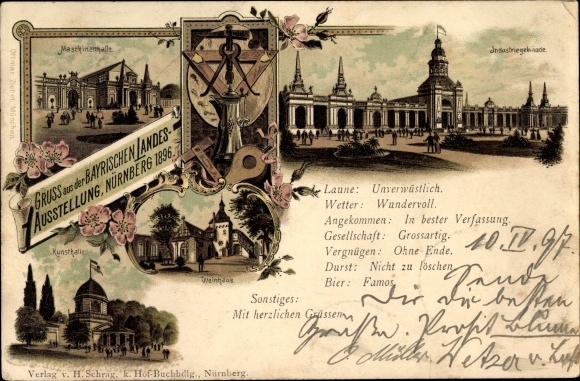 Maschinenhalle.
Industriegebäude.
GRUSS aus der BAYRISCHEN LANDES-
AUSSTELLUNG, NÜRNBERG 1896.
Kunsthalle.
Weinhaus
Laune: Unverwüstlich.
Wetter: Wundervoll.
Angekommen: In bester Verfassung.
Gesellschaft: Grossartig.
Vergnügen: Ohne Ende.
Durst: Nicht zu löschen.
Bier: Famos.
Sonstiges:
Mit herzlichen Grüssen
10. IV. 97.
Sende
Dir die besten
Grüße. Prosit
Müller
Verlag v. H. Schrag, k. Hof-Buchhdlg., Nürnberg.